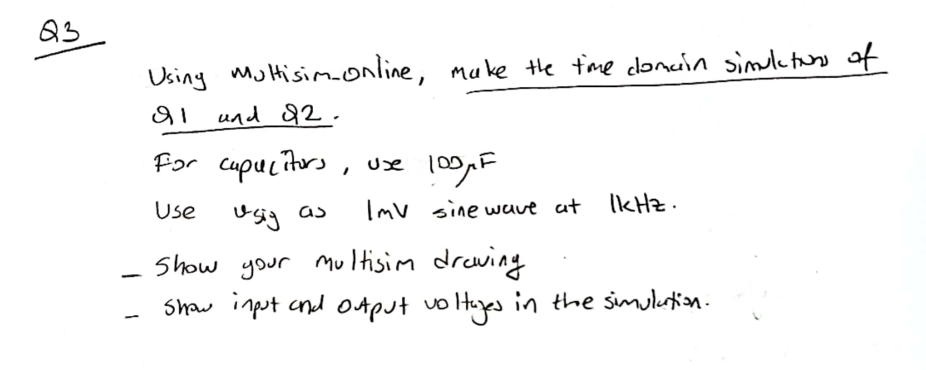 Q3
Using Multisim-online, make the time domain simulations of
Q1 and Q2.
For capacitors, use 100µF
Use vsig as 1mV sinewave at 1kHz.
- Show your multisim drawing
- Show input and output voltages in the simulation.